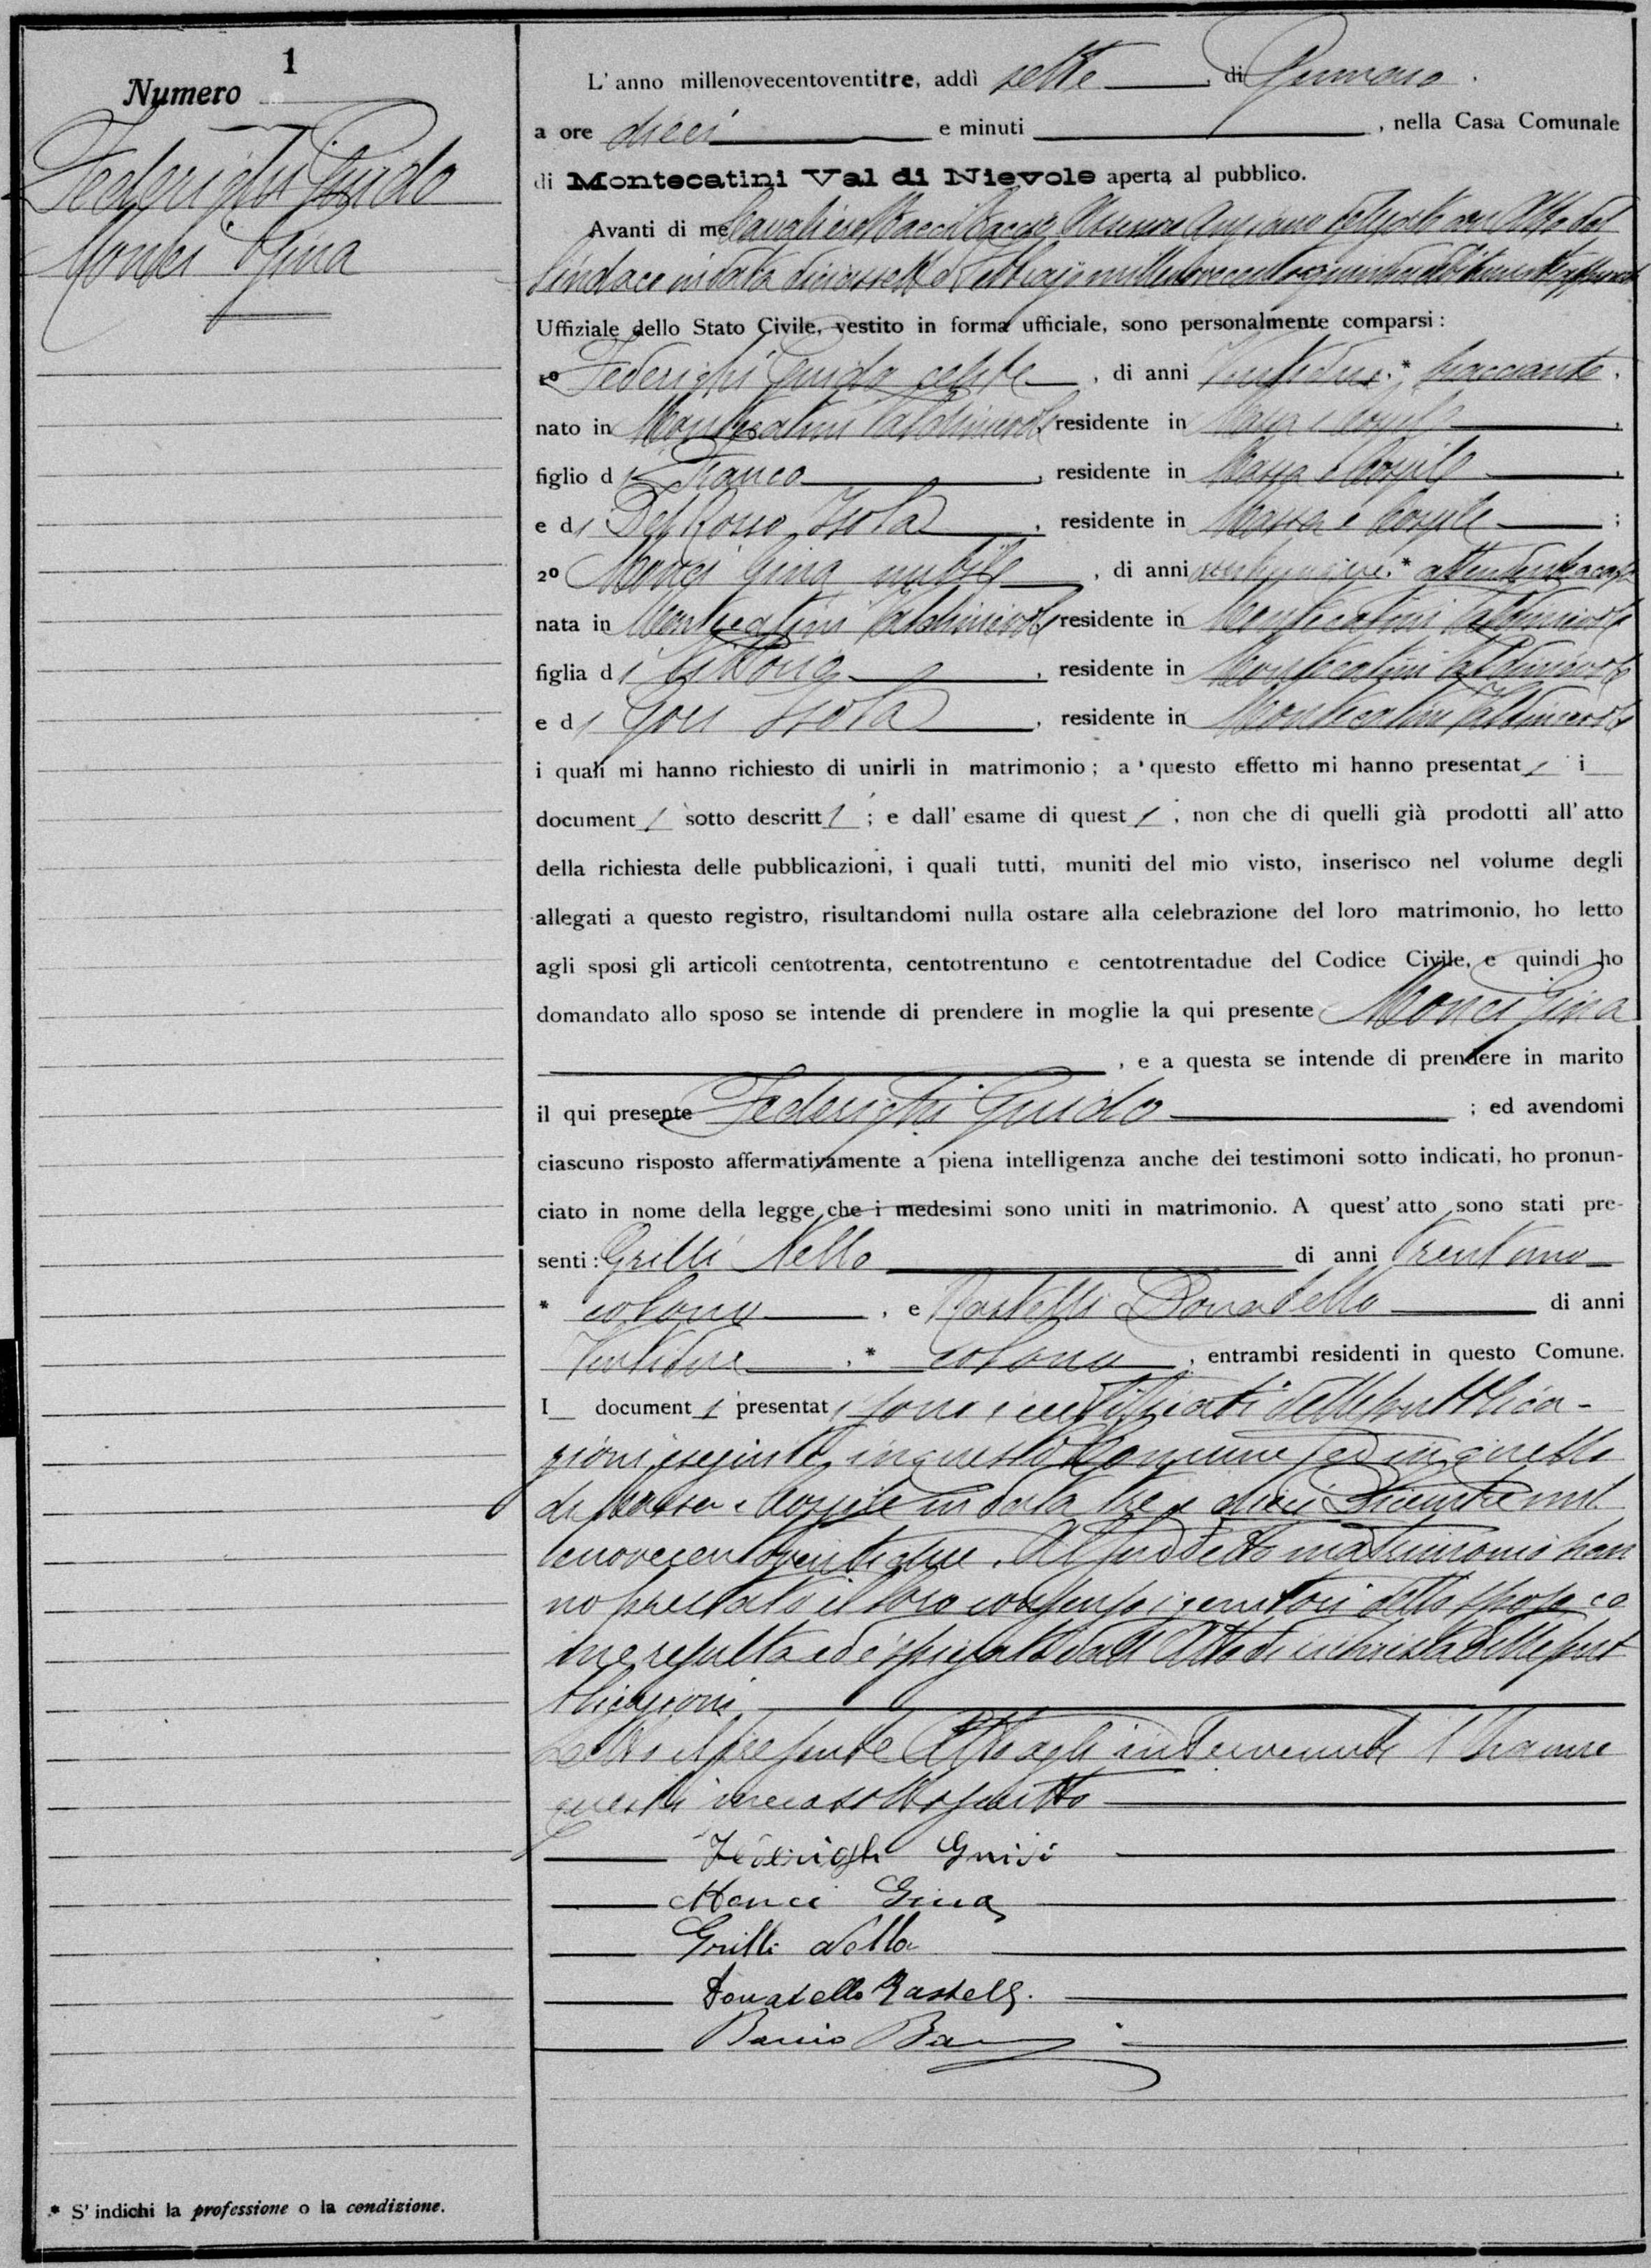 1
Numero
Federighi Guido
Monci Gina
L' anno millenovecentoventitre, addì sette , di Gennaio .
a ore dieci e minuti , nella Casa Comunale
di Montecatini Val di Nievole aperta al pubblico.
Avanti di me Cavaliere Bacci Baccio Assessore Anziano delegato con Atto del
Sindaco in data diciassette Febbraio millenovecentoquindici debitamente approvato
Uffiziale dello Stato Civile, vestito in forma ufficiale, sono personalmente comparsi :
1o Federighi Guido celibe , di anni Ventidue , * bracciante ,
nato in Montecatini Valdinievole , residente in Massa e Cozzile ,
figlio di Franco , residente in Massa e Cozzile ,
e di Del Rosso Isola , residente in Massa e Cozzile ;
2o Monci Gina nubile , di anni , * attendente a casa
nata in Montecatini Valdinievole , residente in Montecatini Valdinievole
figlia di , residente in Montecatini Valdinievole
e di Gori Isola , residente in Montecatini Valdinievole
i quali mi hanno richiesto di unirli in matrimonio ; a questo effetto mi hanno presentati i
documenti sotto descritti ; e dall' esame di questi , non che di quelli già prodotti all' atto
della richiesta delle pubblicazioni, i quali tutti, muniti del mio visto, inserisco nel volume degli
allegati a questo registro, risultandomi nulla ostare alla celebrazione del loro matrimonio, ho letto
agli sposi gli articoli centotrenta, centotrentuno e centotrentadue del Codice Civile, e quindi ho
domandato allo sposo se intende di prendere in moglie la qui presente Monci Gina
, e a questa se intende di prendere in marito
il qui presente Federighi Guido ; ed avendomi
ciascuno risposto affermativamente a piena intelligenza anche dei testimoni sotto indicati, ho pronun-
ciato in nome della legge che i medesimi sono uniti in matrimonio. A quest' atto sono stati pre-
senti : Grilli Nello di anni Trentuno
* colono , e Rastelli Donatello di anni
Ventidue , * colono , entrambi residenti in questo Comune.
I documenti presentati sono i certificati delle pubblica-
zioni eseguite in questo Comune ed in quello
di Massa e Cozzile in data tre e dieci Dicembre mil
lenovecentoventidue. Al suddetto matrimonio han
no prestato il loro consenso i genitori dello sposo co
me resulta ed è spiegato dall' Atto di richiesta delle pub
blicazioni
Letto il presente Atto agli intervenuti l' hanno
questi meco sottoscritto
Federighi Guido
Monci Gina
Grilli Nello
Donatello Rastelli.
Baccio Bacci
* S' indichi la professione o la condizione.